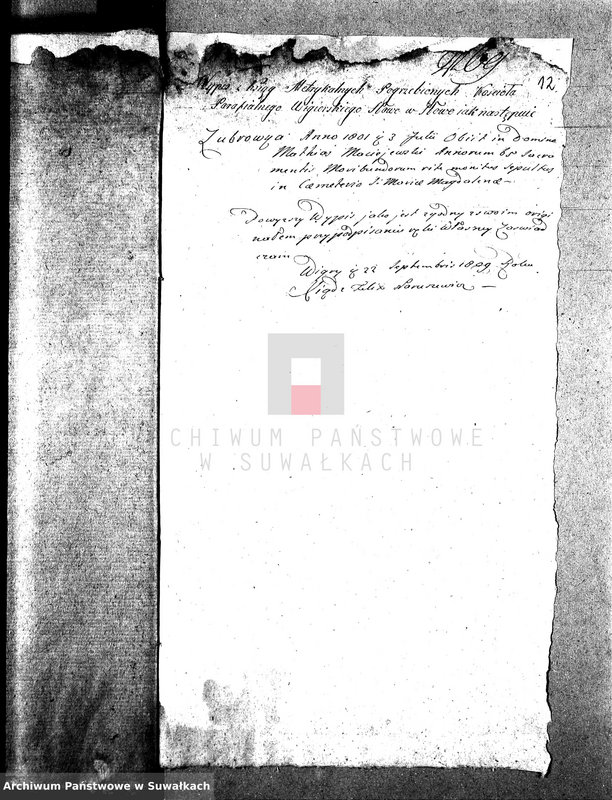 12
Wypis z Xiąg Metrykalnych Pogrzebionych Kościoła
Parafialnego Wigierskiego Słowo w Słowo iak następuie
Zubrowqa Anno 1801 d 3 Julii Obiit in Domino
Mathias Maciejewski Annorum 65 Sacra
mentis Moribundorum rite monitus Sepultus
in Cœmeterio S: Mariæ Magdalenæ —
Powyższy Wypis jako jest zgodny z swoim orygi
nałem przy podpisaniu ręki własney zaświad
czam
Wigry d 22 Septembris 1809 Roku
Xiądz Felix —
ARCHIWUM PAŃSTWOWE
W SUWAŁKACH
Archiwum Państwowe w Suwałkach